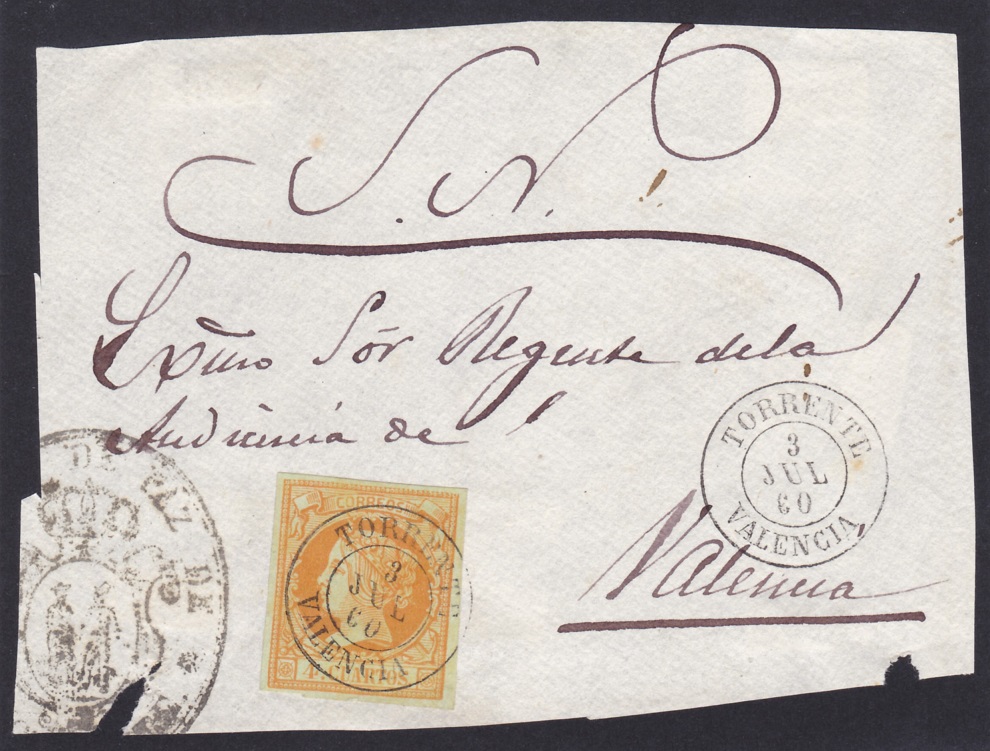 S. N.
Exmo Sór Regente dela
Audiencia de
Valencia
TORRENTE
3
JUL
60
VALENCIA
CORREOS
TORRENTE
3
JUL
60
VALENCIA
4 CUARTOS
DE
DE